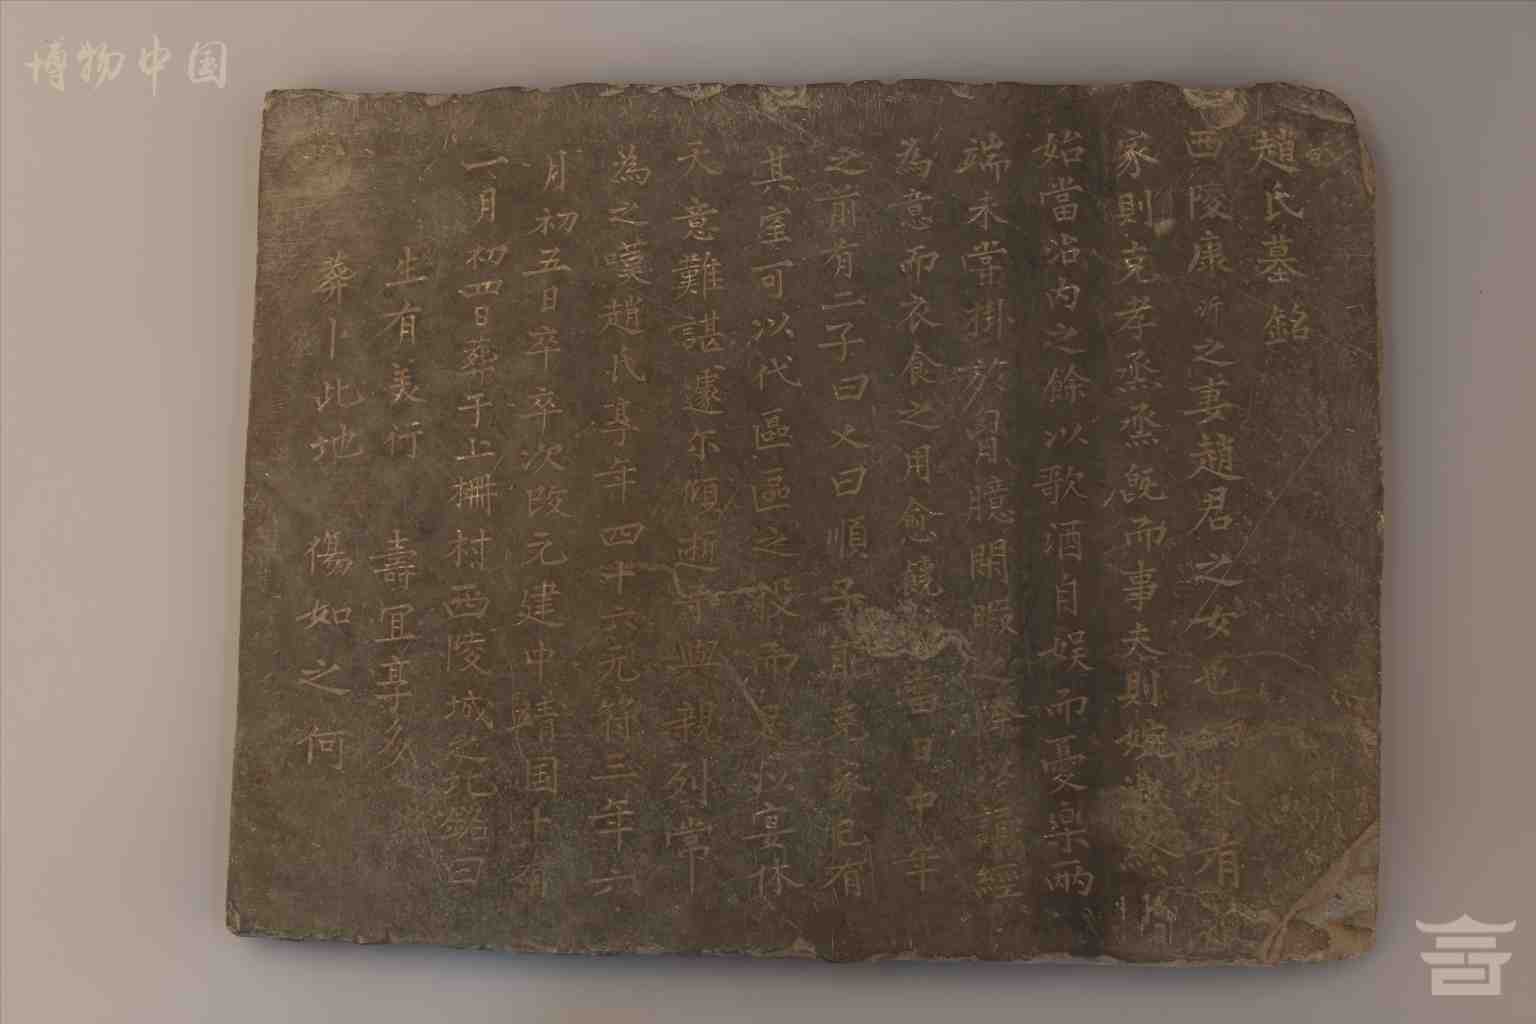 博物中国
趙氏墓銘
西陵康昕之妻趙君之女也 有
家則克孝烝烝既而事夫則婉
始當治内之餘以歌酒自娱而憂樂兩
端未甞掛於胷臆閑暇之 誦經
為意而衣食之用愈饒 當日中年
之前有二子曰乂曰順子能克家已有
其室可以代區區之役而足以宴休
天意難諶遽尓傾逝 與親列常
為之嘆趙氏享年四十六元符三年六
月初五日卒卒次改元建中靖国十有
一月初四日葬于上柵村西陵城之北銘曰
生有美行 壽宜享久
葬卜此地 傷如之何